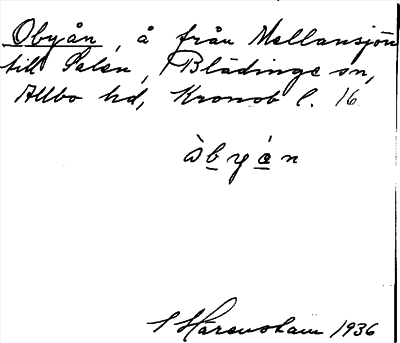 Obyån, å från Mellansjön
till Salen, Blädinge sn,
Allbo hd, Kronob l. 16
òbyán
1936